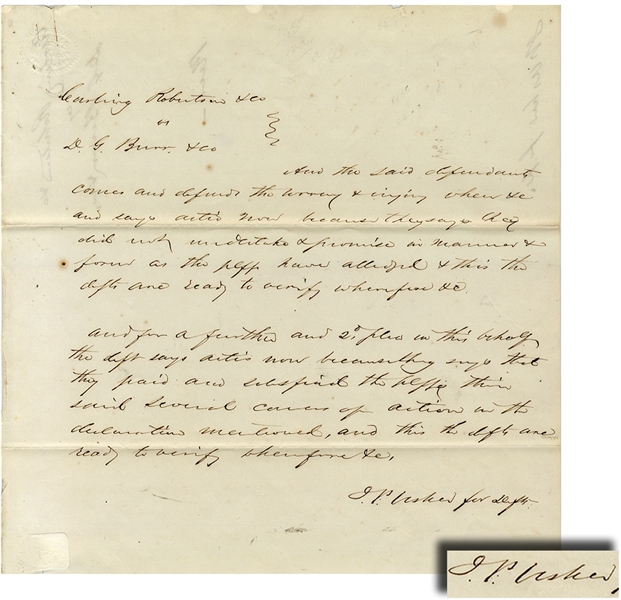 Cushing Robertson & co
vs
D. G. Burr & co
And the said defendants
comes and defends the wrong & injury when &c
and says actio non because they say they
did not undertake & promise in manner &
form as the plffs have alledged & this the
defts are ready to verify wherefore &c.
And for a further and 2d plea in this behalf
the deft says actio non because they says that
they paid and satisfied the plffs their
said several causes of action in the
declaration mentioned, and this the defts are
ready to verify wherefore &c,
J. P. Usher for Defts.
J. P. Usher